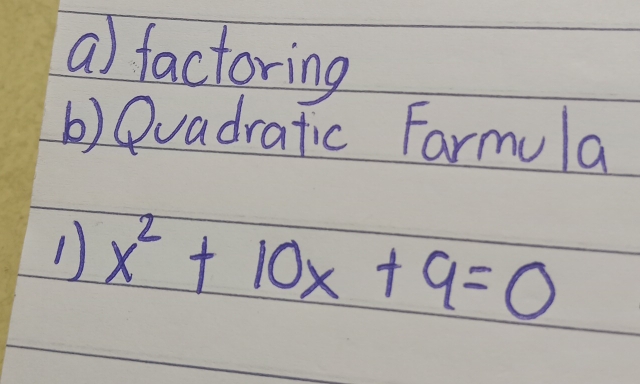 a) factoring
b) Quadratic Farmula
1) x² + 10x + 9 = 0